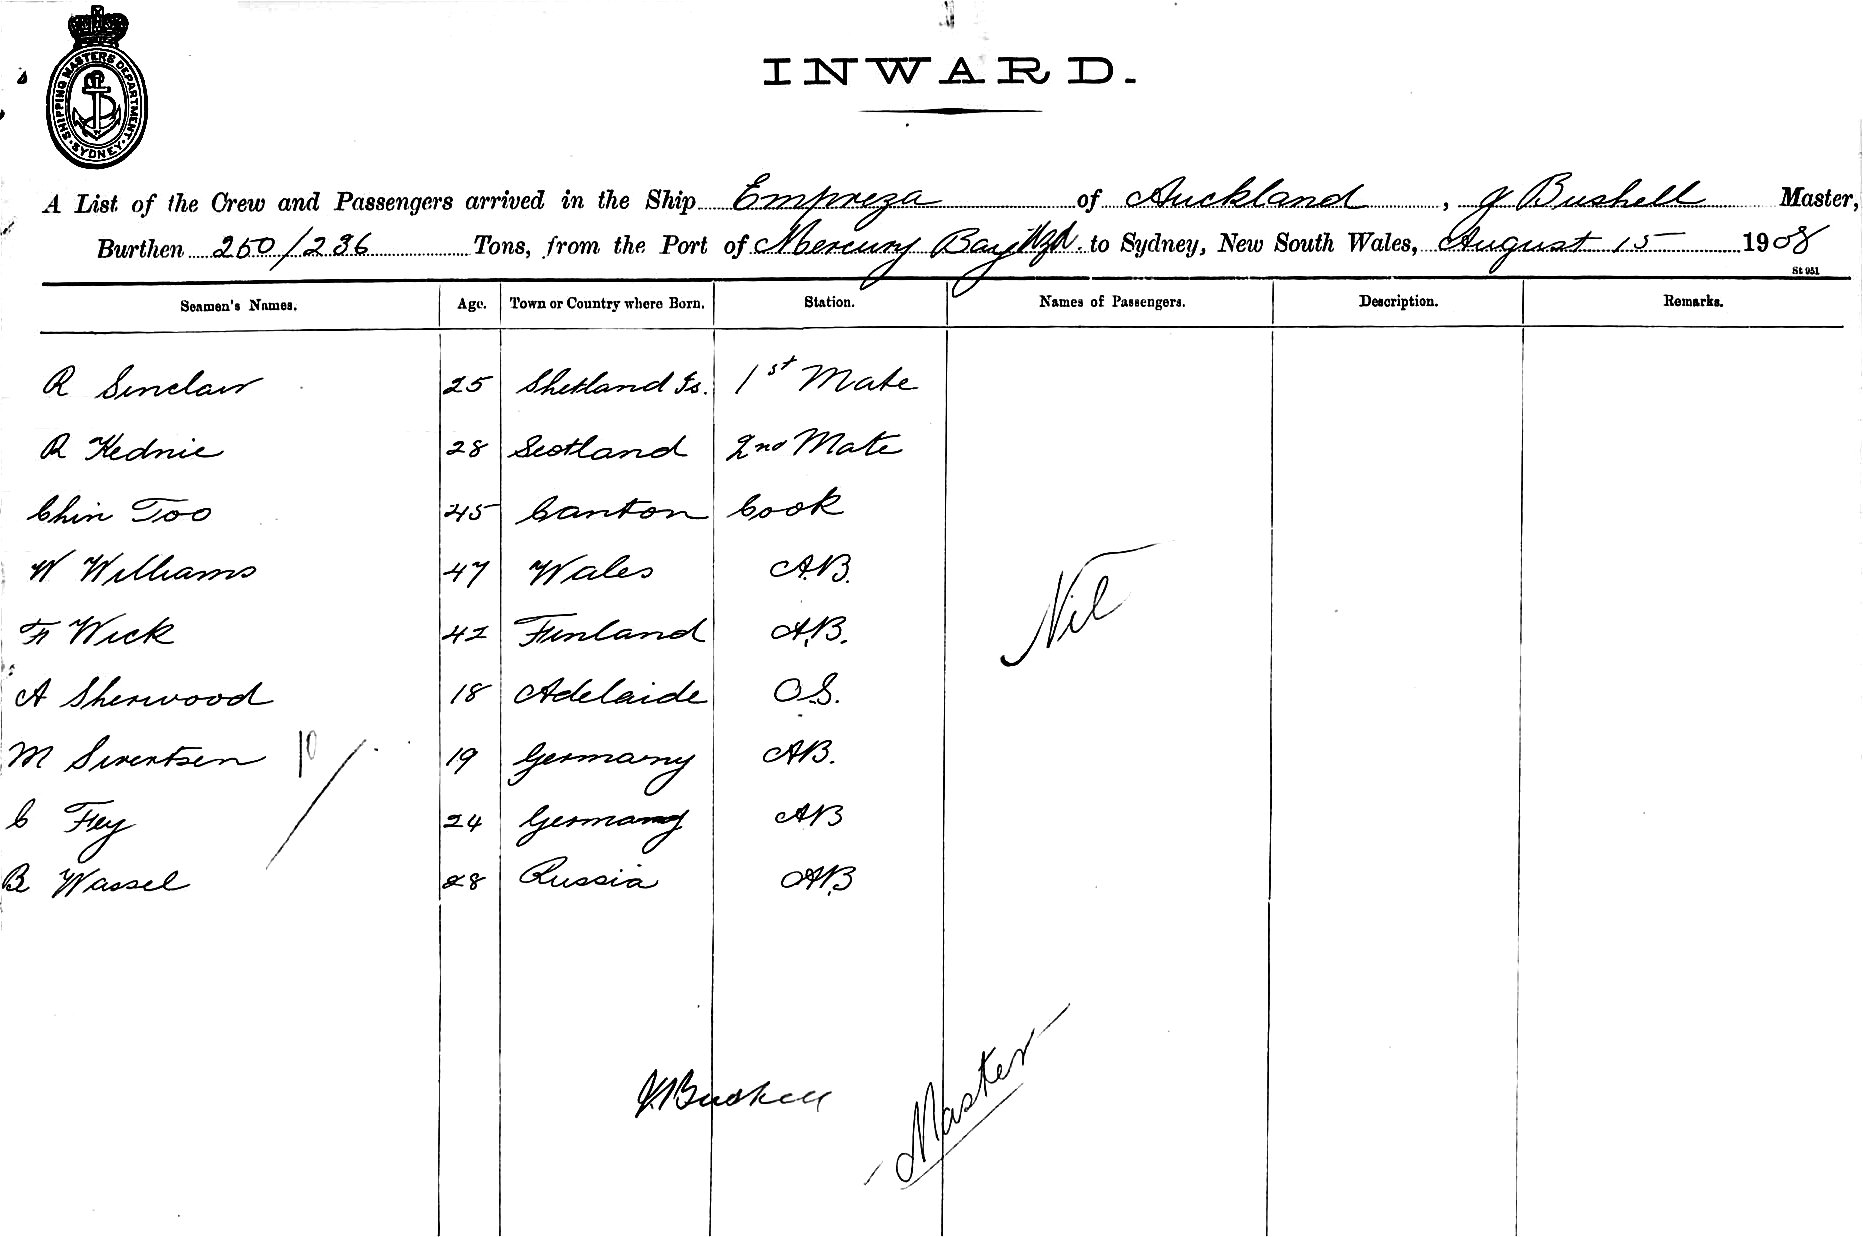 SHIPPING MASTERS DEPARTMENT
SYDNEY
INWARD.
A List of the Crew and Passengers arrived in the Ship Empreza of Auckland, J Bushell Master,
Burthen 250/236 Tons, from the Port of Mercury Bay NZd. to Sydney, New South Wales, August 15 1908
St 951
Seamen's Names. Age. Town or Country where Born. Station. Names of Passengers. Description. Remarks.
R Sinclair 25 Shetland Is. 1st Mate
R Kednie 28 Scotland 2nd Mate
Chin Too 45 Canton Cook
W Williams 47 Wales A.B.
F Wick 42 Finland A.B.
Nil
A Sherwood 18 Adelaide O.S.
M Sivertsen 10 19 Germany AB.
C Fey 24 Germany AB
B Wassel 28 Russia AB
J Bushell
Master